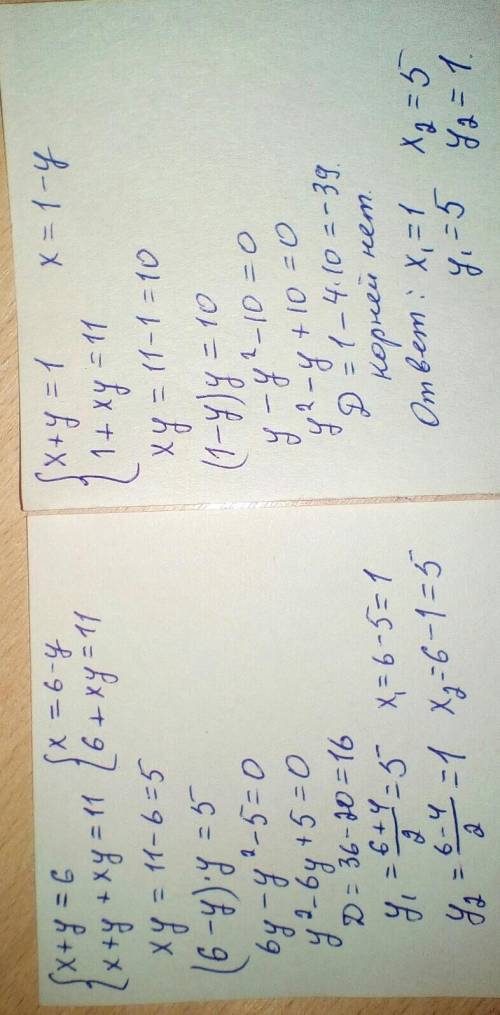 {x+y=6 {x=6-y
{x+y+xy=11 {6+xy=11
xy=11-6=5
(6-y)·y=5
6y-y²-5=0
y²-6y+5=0
D=36-20=16
y₁=(6+4)/2=5 x₁=6-5=1
y₂=(6-4)/2=1 x₂=6-1=5
{x+y=1 x=1-y
{1+xy=11
xy=11-1=10
(1-y)y=10
y-y²-10=0
y²-y+10=0
D=1-4·10=-39.
корней нет.
Ответ: x₁=1 x₂=5
y₁=5 y₂=1.